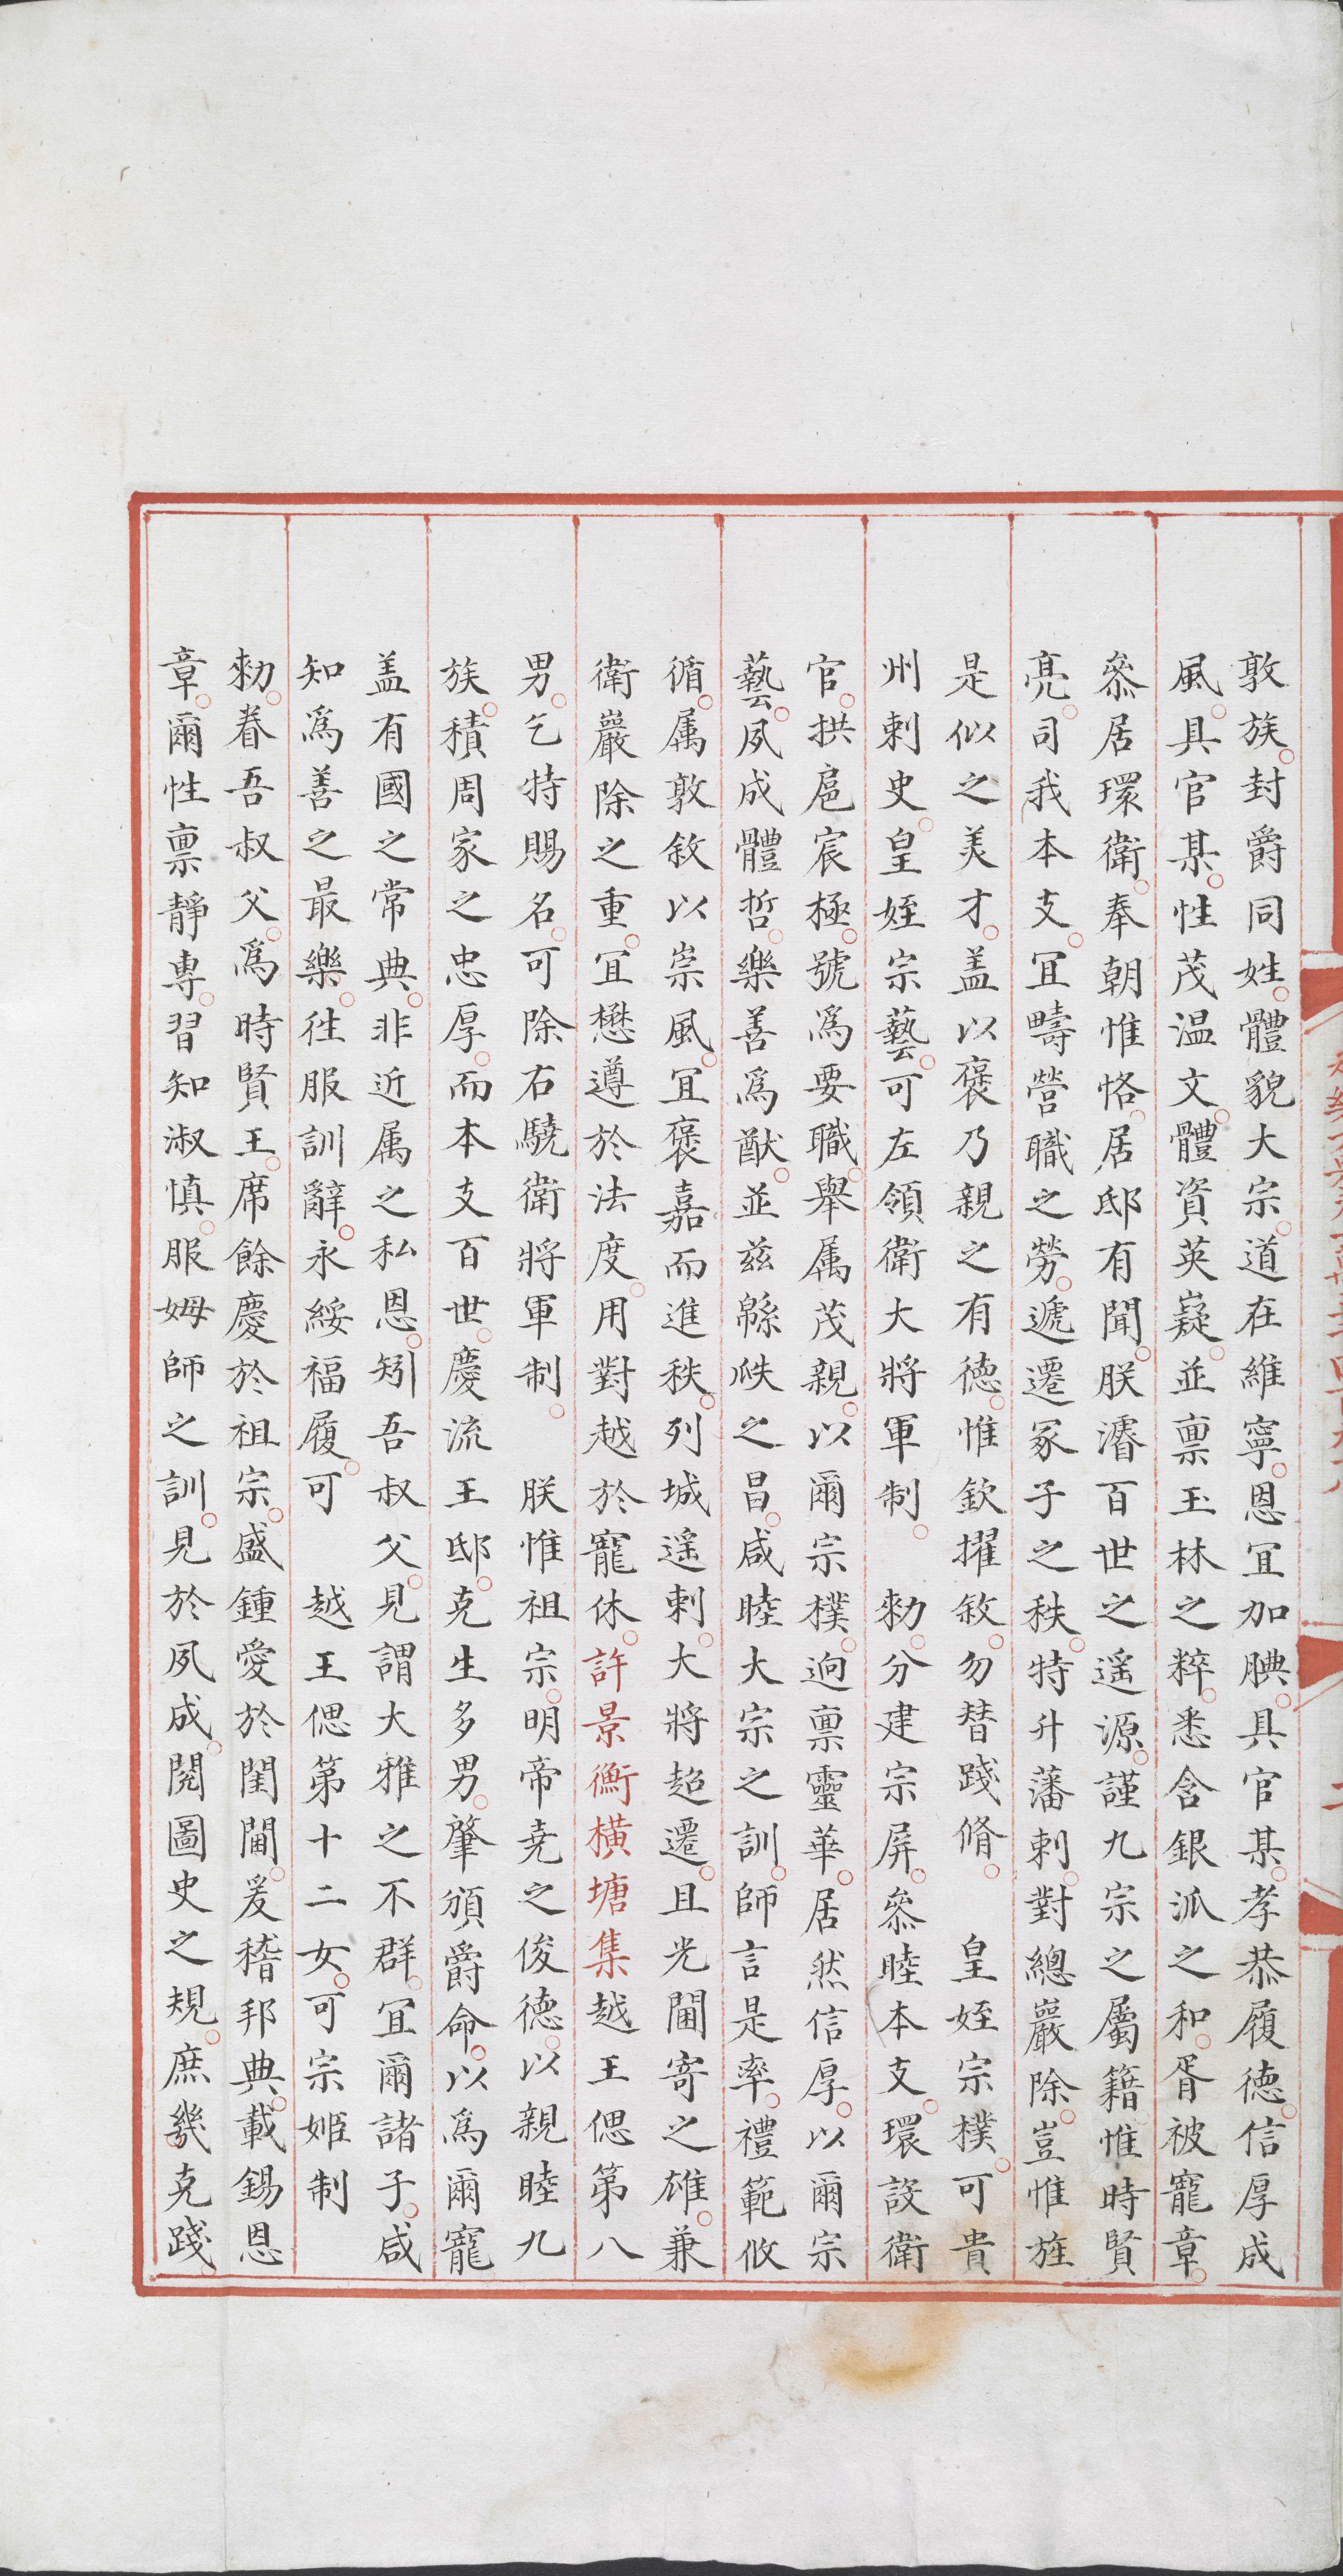 敦族封爵同姓體貌大宗道在維寧恩冝加腆具官某孝恭履德信厚成
風具官某性茂温文體資英嶷並禀玉林之粹悉含銀派之和胥被寵章
叅居環衛奉朝惟恪居邸有聞朕濬百世之遥源謹九宗之屬籍惟時賢
亮司我本支冝疇營職之勞遞遷冢子之秩特升藩刺對總嚴除豈惟旌
是似之美才盖以褒乃親之有德惟欽擢敘勿替踐脩　皇姪宗樸可貴
州刺史皇姪宗藝可左領衛大將軍制　勑分建宗屏叅睦本支環設衛
官拱扈宸極號爲要職舉属茂親以爾宗樸逈禀靈華居然信厚以爾宗
藝夙成體哲樂善爲猷並兹緜瓞之昌咸睦大宗之訓師言是率禮範攸
循属敦敘以崇風冝褒嘉而進秩列城遥刺大將超遷且光閫寄之雄兼
衛嚴除之重冝懋遵於法度用對越於寵休許景衡橫塘集越王偲第八
男乞特賜名可除右驍衛將軍制　朕惟祖宗明帝尭之俊德以親睦九
族積周家之忠厚而本支百世慶流王邸克生多男肇頒爵命以爲爾寵
盖有國之常典非近属之私恩矧吾叔父見謂大雅之不群冝爾諸子咸
知爲善之最樂徃服訓辭永綏福履可　越王偲第十二女可宗姬制
勑眷吾叔父爲時賢王席餘慶於祖宗盛鍾愛於閨閫爰稽邦典載錫恩
章爾性禀靜專習知淑慎服姆師之訓見於夙成閱圖史之規庶幾克踐